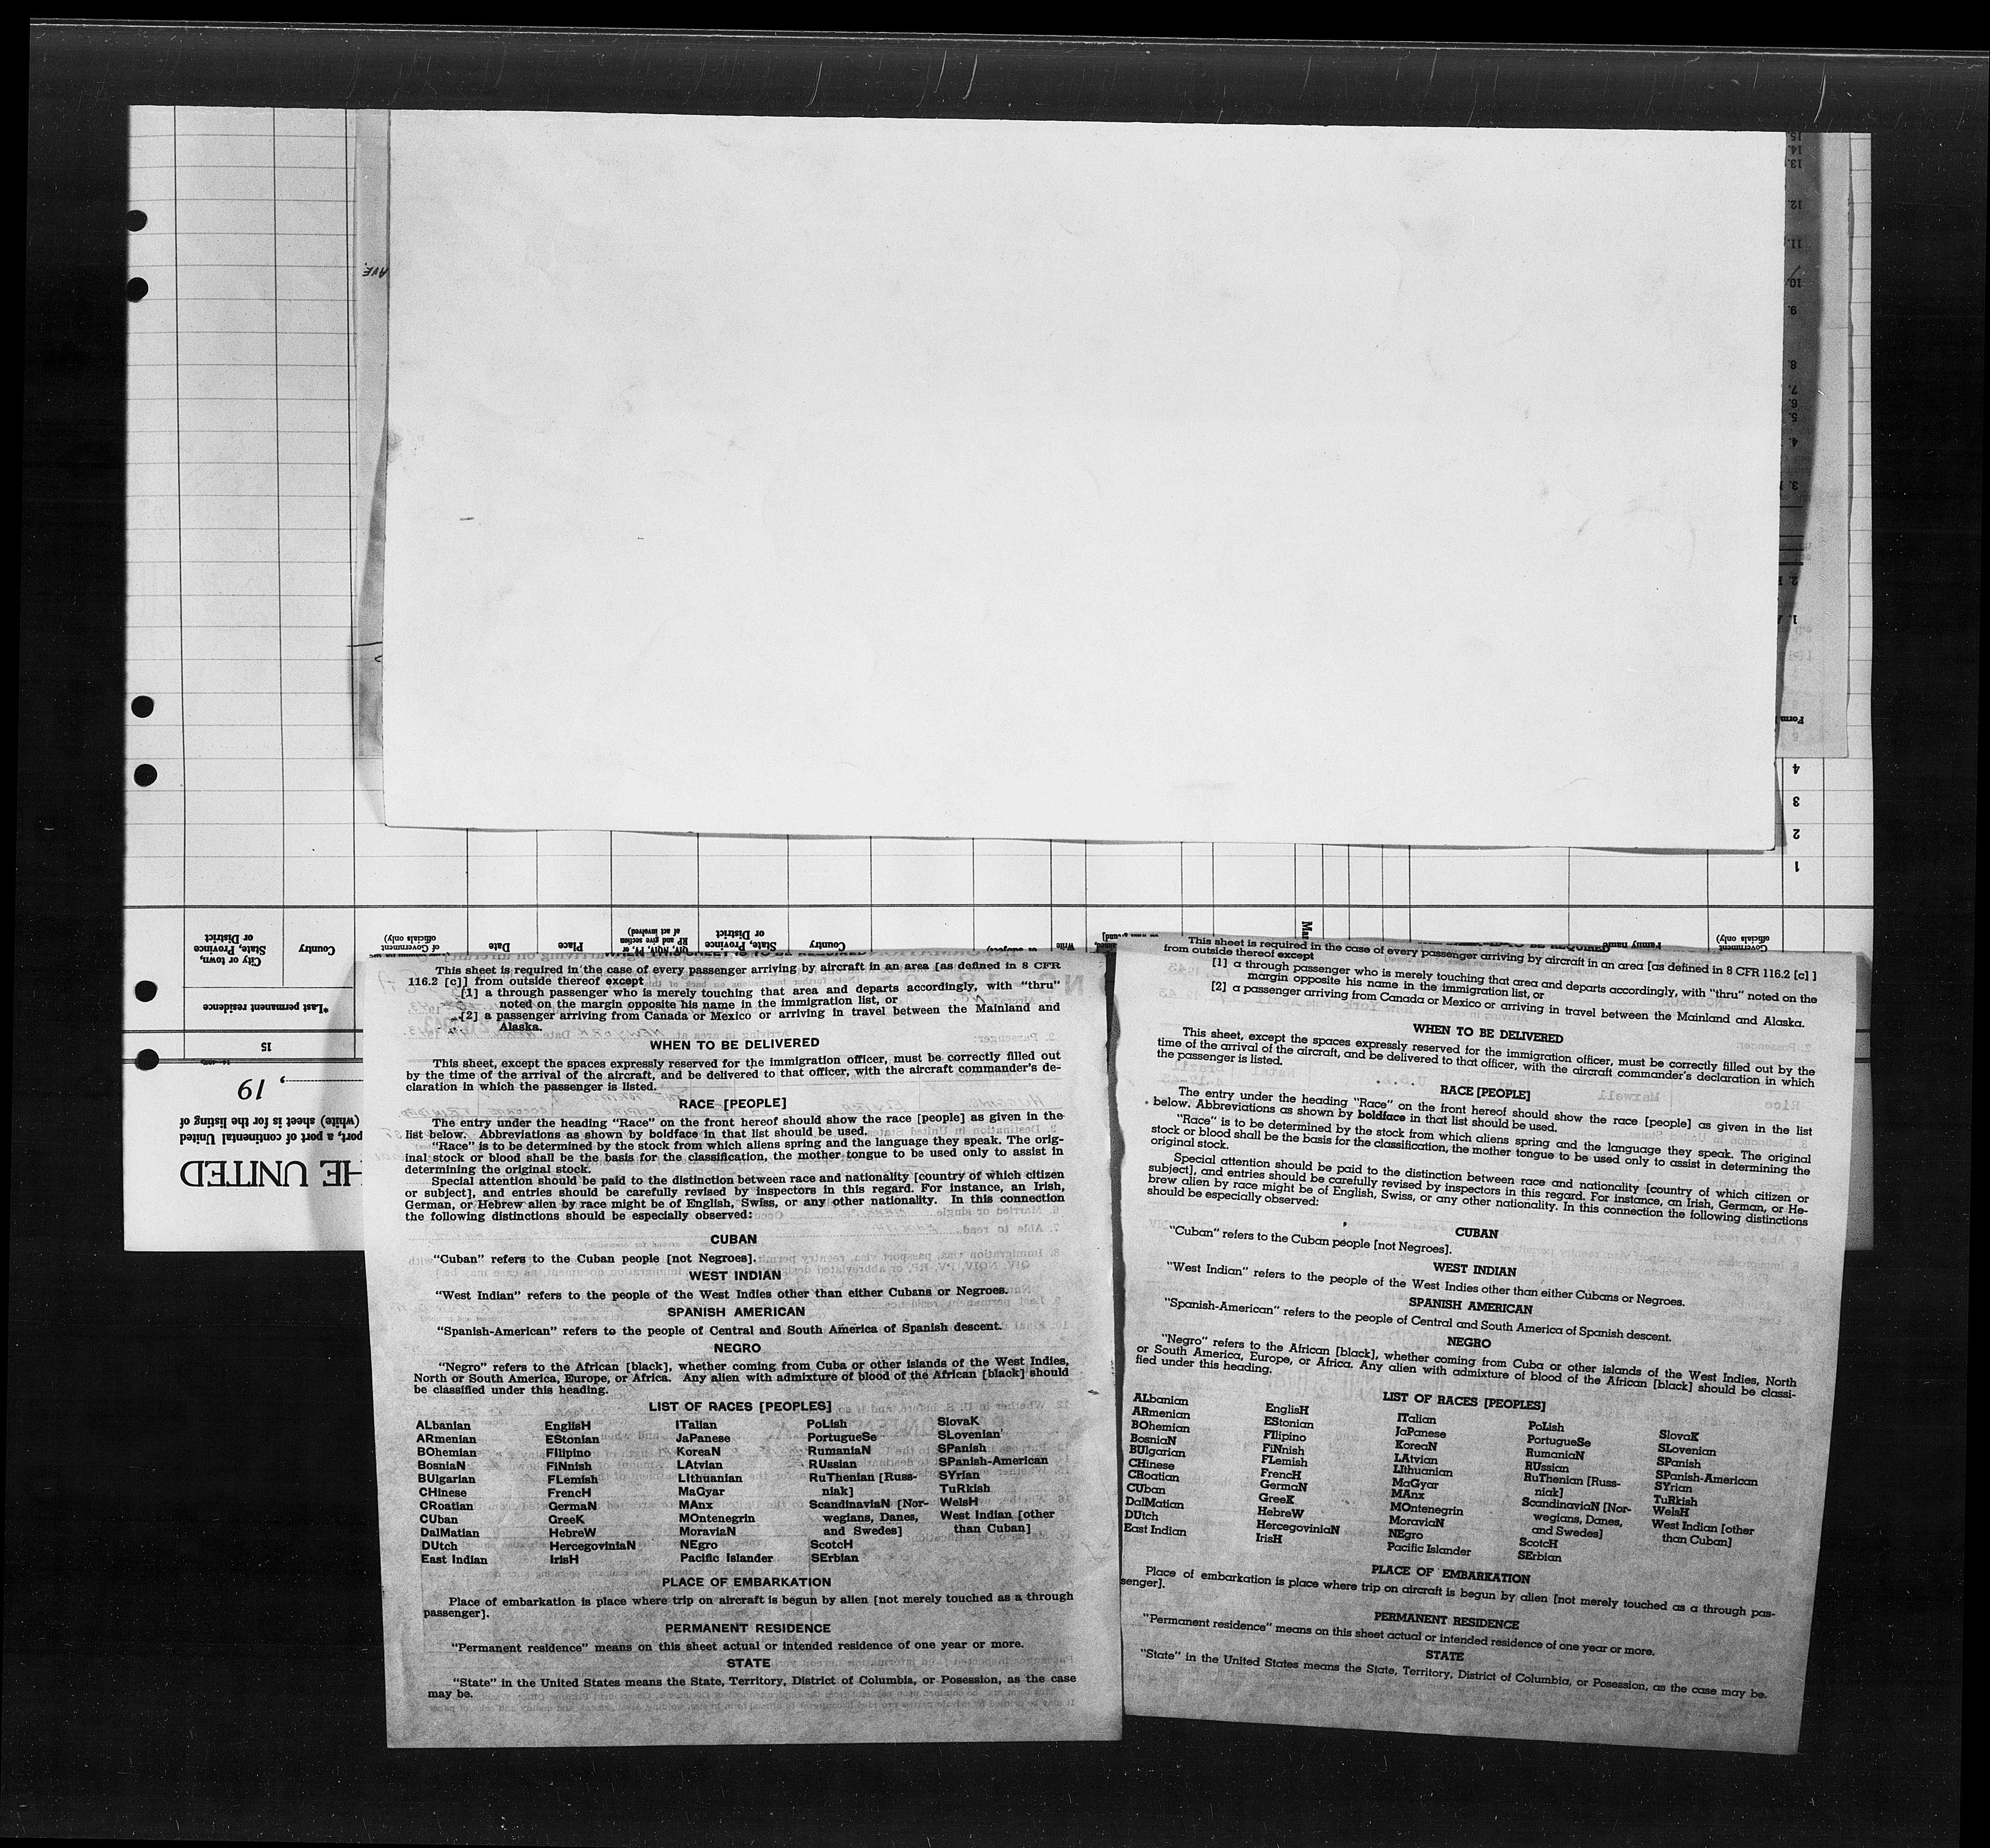 AVE.
15
14.
13.
12.
11.
10.
9.
8.
7.
6.
5.
4.
3.
2.
1.
Form
4
3
2
1
City or town,
State, Province
or District
Country
of Government
officials only)
Date
Place
QIV, NQIV, PV, or
RP and give section
of act involved)
State, Province
or District
Country
Family name
officials only)
*Last permanent residence
15
, 19
(white) sheet is for the listing of
port, a part of continental United
HE UNITED
This sheet is required in the case of every passenger arriving by aircraft in an area [as defined in 8 CFR
116.2 [c]] from outside thereof except
[1] a through passenger who is merely touching that area and departs accordingly, with "thru"
noted on the margin opposite his name in the immigration list, or
[2] a passenger arriving from Canada or Mexico or arriving in travel between the Mainland and
Alaska.
WHEN TO BE DELIVERED
This sheet, except the spaces expressly reserved for the immigration officer, must be correctly filled out
by the time of the arrival of the aircraft, and be delivered to that officer, with the aircraft commander's de-
claration in which the passenger is listed.
RACE [PEOPLE]
The entry under the heading "Race" on the front hereof should show the race [people] as given in the
list below. Abbreviations as shown by boldface in that list should be used.
"Race" is to be determined by the stock from which aliens spring and the language they speak. The orig-
inal stock or blood shall be the basis for the classification, the mother tongue to be used only to assist in
determining the original stock.
Special attention should be paid to the distinction between race and nationality [country of which citizen
or subject], and entries should be carefully revised by inspectors in this regard. For instance, an Irish,
German, or Hebrew alien by race might be of English, Swiss, or any other nationality. In this connection
the following distinctions should be especially observed:
CUBAN
"Cuban" refers to the Cuban people [not Negroes].
WEST INDIAN
"West Indian" refers to the people of the West Indies other than either Cubans or Negroes.
SPANISH AMERICAN
"Spanish-American" refers to the people of Central and South America of Spanish descent.
NEGRO
"Negro" refers to the African [black], whether coming from Cuba or other islands of the West Indies,
North or South America, Europe, or Africa. Any alien with admixture of blood of the African [black] should
be classified under this heading.
LIST OF RACES [PEOPLES]
ALbanian
ARmenian
BOhemian
BosniaN
BUlgarian
CHinese
CRoatian
CUban
DalMatian
DUtch
East Indian
EnglisH
EStonian
FIlipino
FiNnish
FLemish
FrencH
GermaN
GreeK
HebreW
HercegoviniaN
IrisH
ITalian
JaPanese
KoreaN
LAtvian
LIthuanian
MaGyar
MAnx
MOntenegrin
MoraviaN
NEgro
Pacific Islander
PoLish
PortugueSe
RumaniaN
RUssian
RuThenian [Russ-
niak]
ScandinaviaN [Nor-
wegians, Danes,
and Swedes]
ScotcH
SErbian
SlovaK
SLovenian
SPanish
SPanish-American
SYrian
TuRkish
WelsH
West Indian [other
than Cuban]
PLACE OF EMBARKATION
Place of embarkation is place where trip on aircraft is begun by alien [not merely touched as a through
passenger].
PERMANENT RESIDENCE
"Permanent residence" means on this sheet actual or intended residence of one year or more.
STATE
"State" in the United States means the State, Territory, District of Columbia, or Posession, as the case
may be.
This sheet is required in the case of every passenger arriving by aircraft in an area [as defined in 8 CFR 116.2 [c] ]
from outside thereof except
[1] a through passenger who is merely touching that area and departs accordingly, with "thru" noted on the
margin opposite his name in the immigration list, or
[2] a passenger arriving from Canada or Mexico or arriving in travel between the Mainland and Alaska.
WHEN TO BE DELIVERED
This sheet, except the spaces expressly reserved for the immigration officer, must be correctly filled out by the
time of the arrival of the aircraft, and be delivered to that officer, with the aircraft commander's declaration in which
the passenger is listed.
RACE [PEOPLE]
The entry under the heading "Race" on the front hereof should show the race [people] as given in the list
below. Abbreviations as shown by boldface in that list should be used.
"Race" is to be determined by the stock from which aliens spring and the language they speak. The original
stock or blood shall be the basis for the classification, the mother tongue to be used only to assist in determining the
original stock.
Special attention should be paid to the distinction between race and nationality [country of which citizen or
subject], and entries should be carefully revised by inspectors in this regard. For instance, an Irish, German, or He-
brew alien by race might be of English, Swiss, or any other nationality. In this connection the following distinctions
should be especially observed:
CUBAN
"Cuban" refers to the Cuban people [not Negroes].
WEST INDIAN
"West Indian" refers to the people of the West Indies other than either Cubans or Negroes.
SPANISH AMERICAN
"Spanish-American" refers to the people of Central and South America of Spanish descent.
NEGRO
"Negro" refers to the African [black], whether coming from Cuba or other islands of the West Indies, North
or South America, Europe, or Africa. Any alien with admixture of blood of the African [black] should be classi-
fied under this heading.
LIST OF RACES [PEOPLES]
ALbanian
ARmenian
BOhemian
BosniaN
BUlgarian
CHinese
CRoatian
CUban
DalMatian
DUtch
East Indian
EnglisH
EStonian
FIlipino
FiNnish
FLemish
FrencH
GermaN
GreeK
HebreW
HercegoviniaN
IrisH
ITalian
JaPanese
KoreaN
LAtvian
LIthuanian
MaGyar
MAnx
MOntenegrin
MoraviaN
NEgro
Pacific Islander
PoLish
PortugueSe
RumaniaN
RUssian
RuThenian [Russ-
niak]
ScandinaviaN [Nor-
wegians, Danes,
and Swedes]
ScotcH
SErbian
SlovaK
SLovenian
SPanish
SPanish-American
SYrian
TuRkish
WelsH
West Indian [other
than Cuban]
PLACE OF EMBARKATION
Place of embarkation is place where trip on aircraft is begun by alien [not merely touched as a through pas-
senger].
PERMANENT RESIDENCE
"Permanent residence" means on this sheet actual or intended residence of one year or more.
STATE
"State" in the United States means the State, Territory, District of Columbia, or Posession, as the case may be.